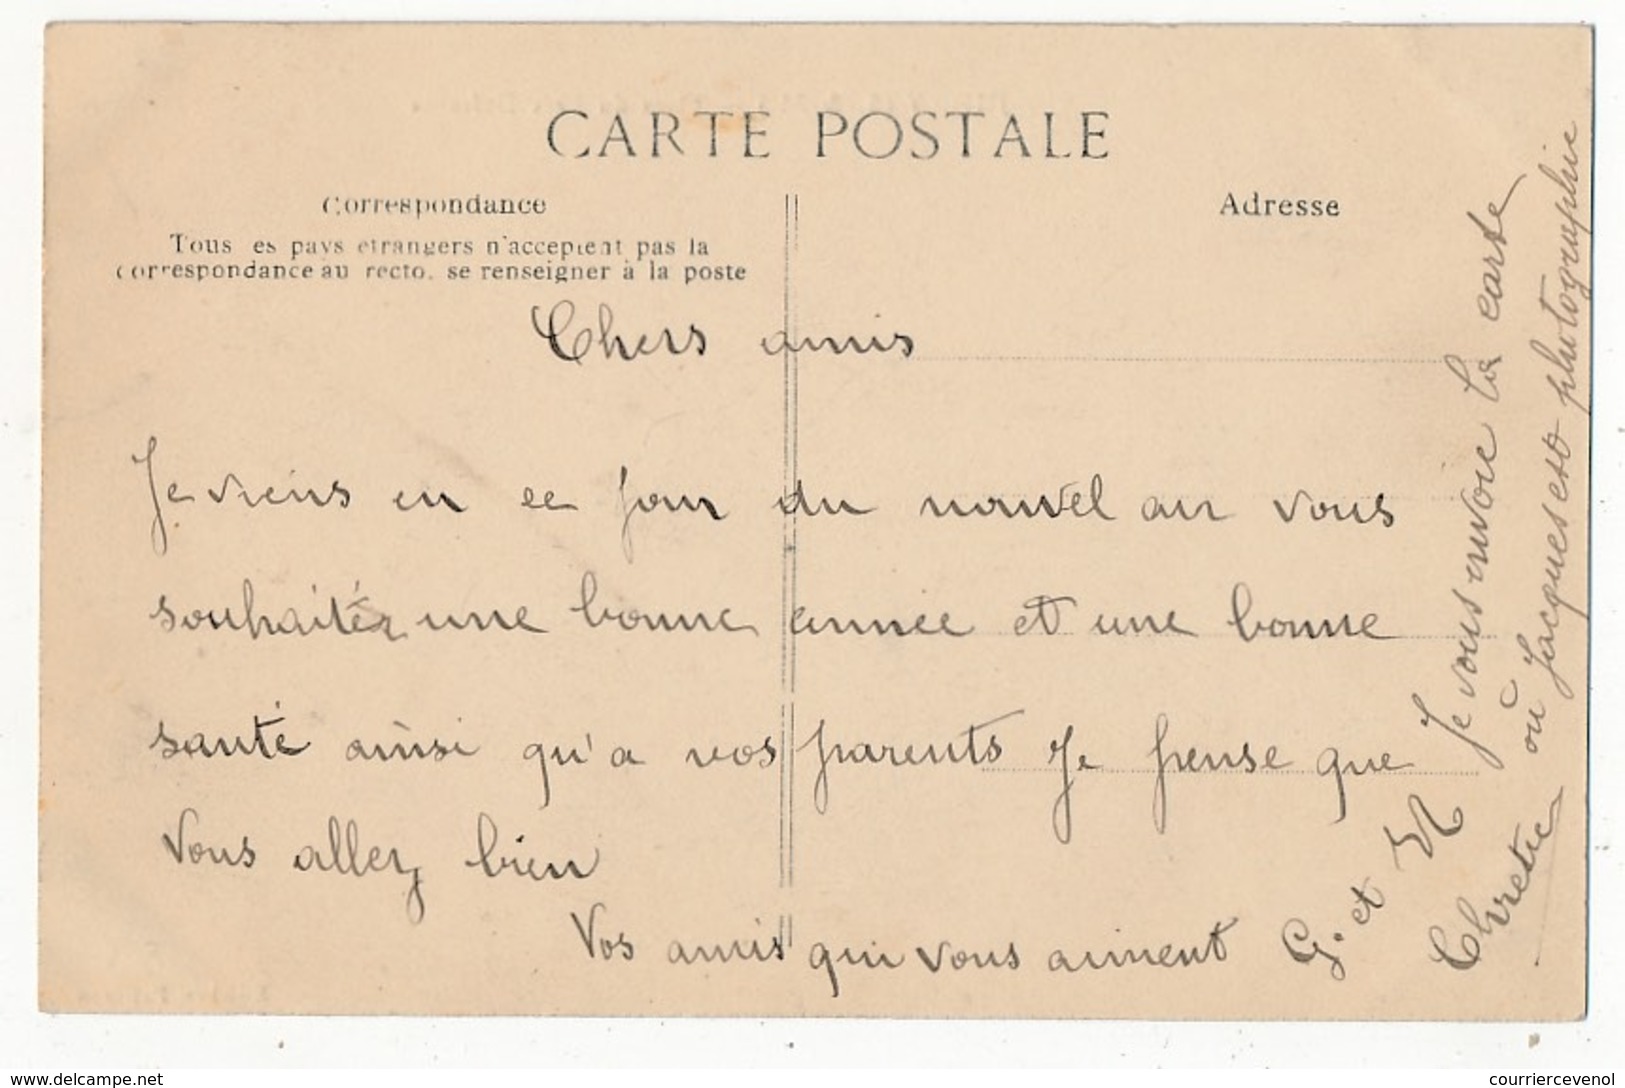 CARTE POSTALE
Correspondance
Adresse
Tous les pays étrangers n'acceptent pas la
correspondance au recto, se renseigner à la poste
Chers amis
Je viens en ce jour du nouvel an vous
souhaiter une bonne année et une bonne
santé ainsi qu'a vos parents Je pense que
Vous allez bien
Vos amis qui vous aiment G. et N
Chretie
Je vous envoie la carte
où Jacques est photographie
www.delcampe.net
courriercevenol